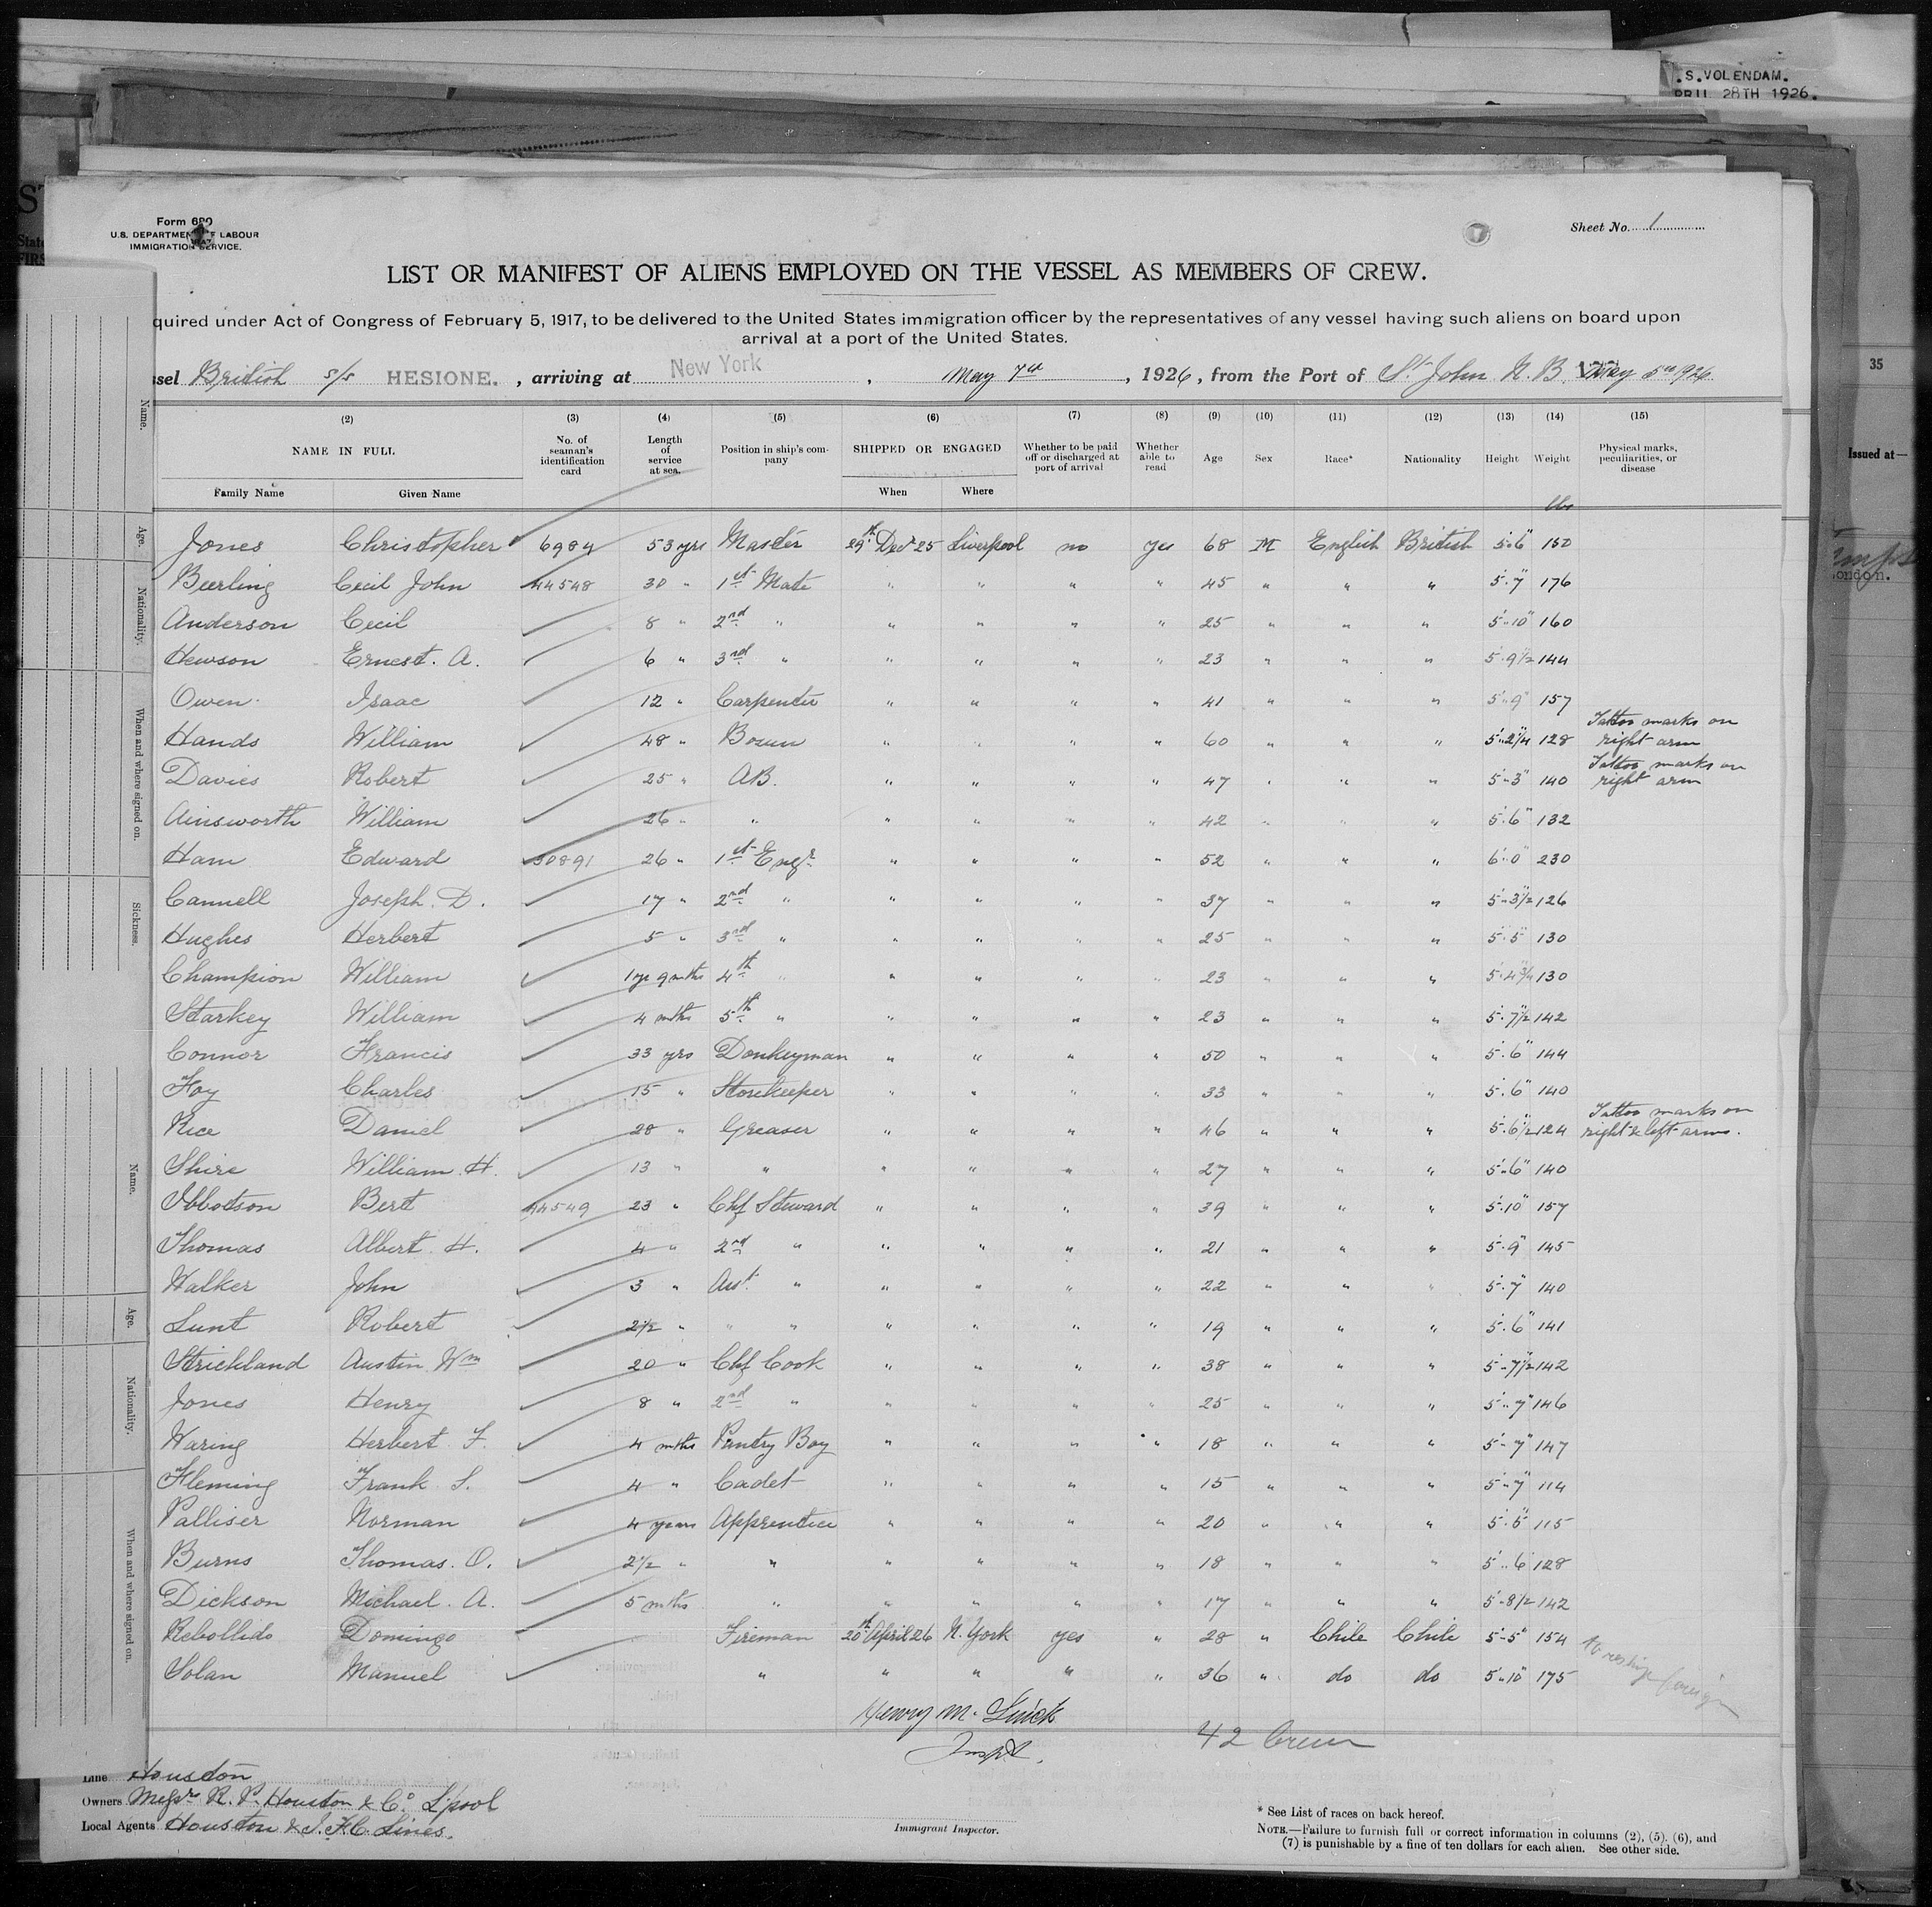 .S.VOLENDAM.
PRIL 28TH 1926.
35
Issued at—
ondon.
Form 680
U.S. DEPARTMENT OF LABOUR
IMMIGRATION SERVICE.
Sheet No. 1
LIST OR MANIFEST OF ALIENS EMPLOYED ON THE VESSEL AS MEMBERS OF CREW.
quired under Act of Congress of February 5, 1917, to be delivered to the United States immigration officer by the representatives of any vessel having such aliens on board upon
arrival at a port of the United States.
ssel British s/s HESIONE. , arriving at New York , May 7th , 1926, from the Port of St. John N.B. May 5th 1926
(2) (3) (4) (5) (6) (7) (8) (9) (10) (11) (12) (13) (14) (15)
NAME IN FULL No. of seaman's identification card Length of service at sea. Position in ship's company SHIPPED OR ENGAGED Whether to be paid off or discharged at port of arrival Whether able to read Age Sex Race* Nationality Height Weight Physical marks, peculiarities, or disease
Family Name Given Name When Where
lbs
Jones Christopher 6984 53 yrs Master 29th Decr 25 Liverpool no yes 68 M English British 5'-6" 150
Beerling Cecil John 44548 30 " 1st Mate " " " " 45 " " " 5'-7" 176
Anderson Cecil 8 " 2nd " " " " " 25 " " " 5'-10" 160
Hewson Ernest. A. 6 " 3rd " " " " " 23 " " " 5'-9 1/2" 144
Owen Isaac 12 " Carpenter " " " " 41 " " " 5'-9" 157
Hands William 48 " Bosun " " " " 60 " " " 5'-2 1/4" 128 Tattoo marks on right arm
Davies Robert 25 " AB. " " " " 47 " " " 5'-3" 140 Tattoo marks on right arm
Ainsworth William 26 " " " " " " 42 " " " 5'-6" 132
Ham Edward 30891 26 " 1st Engr " " " " 52 " " " 6'-0" 230
Cannell Joseph. D. 17 " 2nd " " " " " 37 " " " 5'-3 1/2" 126
Hughes Herbert 5 " 3rd " " " " " 25 " " " 5'-5" 130
Champion William 1 yr 9 mths 4th " " " " " 23 " " " 5'-4 3/4" 130
Starkey William 4 mths 5th " " " " " 23 " " " 5'-7 1/2" 142
Connor Francis 33 yrs Donkeyman " " " " 50 " " " 5'-6" 144
Foy Charles 15 " Storekeeper " " " " 33 " " " 5'-6" 140
Rice Daniel 28 " Greaser " " " " 46 " " " 5'-6 1/2" 124 Tattoo marks on right & left arms.
Shire William. H. 13 " " " " " " 27 " " " 5'-6" 140
Ibbotson Bert 44549 23 " Chf Steward " " " " 39 " " " 5'-10" 157
Thomas Albert. H. 4 " 2nd " " " " " 21 " " " 5'-9" 145
Walker John 3 " Asst. " " " " " 22 " " " 5'-7" 140
Lunt Robert 2 1/2 " " " " " " " 19 " " " 5'-6" 141
Strickland Austin Wm 20 " Chf Cook " " " " 38 " " " 5'-7 1/2" 142
Jones Henry 8 " 2nd " " " " " 25 " " " 5'-7" 146
Waring Herbert F. 4 mths Pantry Boy " " " " 18 " " " 5'-7" 147
Fleming Frank. S. 4 " Cadet " " " " 15 " " " 5'-7" 114
Palliser Norman 4 years Apprentice " " " " 20 " " " 5'-6" 115
Burns Thomas. O. 2 1/2 " " " " " " 18 " " " 5'-6" 128
Dickson Michael. A. 5 mths " " " " " 17 " " " 5'-8 1/2 142
Rebollido Domingo Fireman 20th April 26 N. York yes " 28 " Chile Chile 5'-5" 154 to reship foreign
Solan Manuel " " " " " 36 " do do 5'-10" 175
Henry M.
Inspt.
42 Crew
Line Houston
Owners Messrs R. P. Houston & Co. L'pool
Local Agents Houston & Lines.
Immigrant Inspector.
* See List of races on back hereof.
NOTE.—Failure to furnish full or correct information in columns (2), (5), (6), and
(7) is punishable by a fine of ten dollars for each alien. See other side.
Name.
Age.
Nationality.
When and where signed on.
Sickness.
Name.
Age.
Nationality.
When and where signed on.